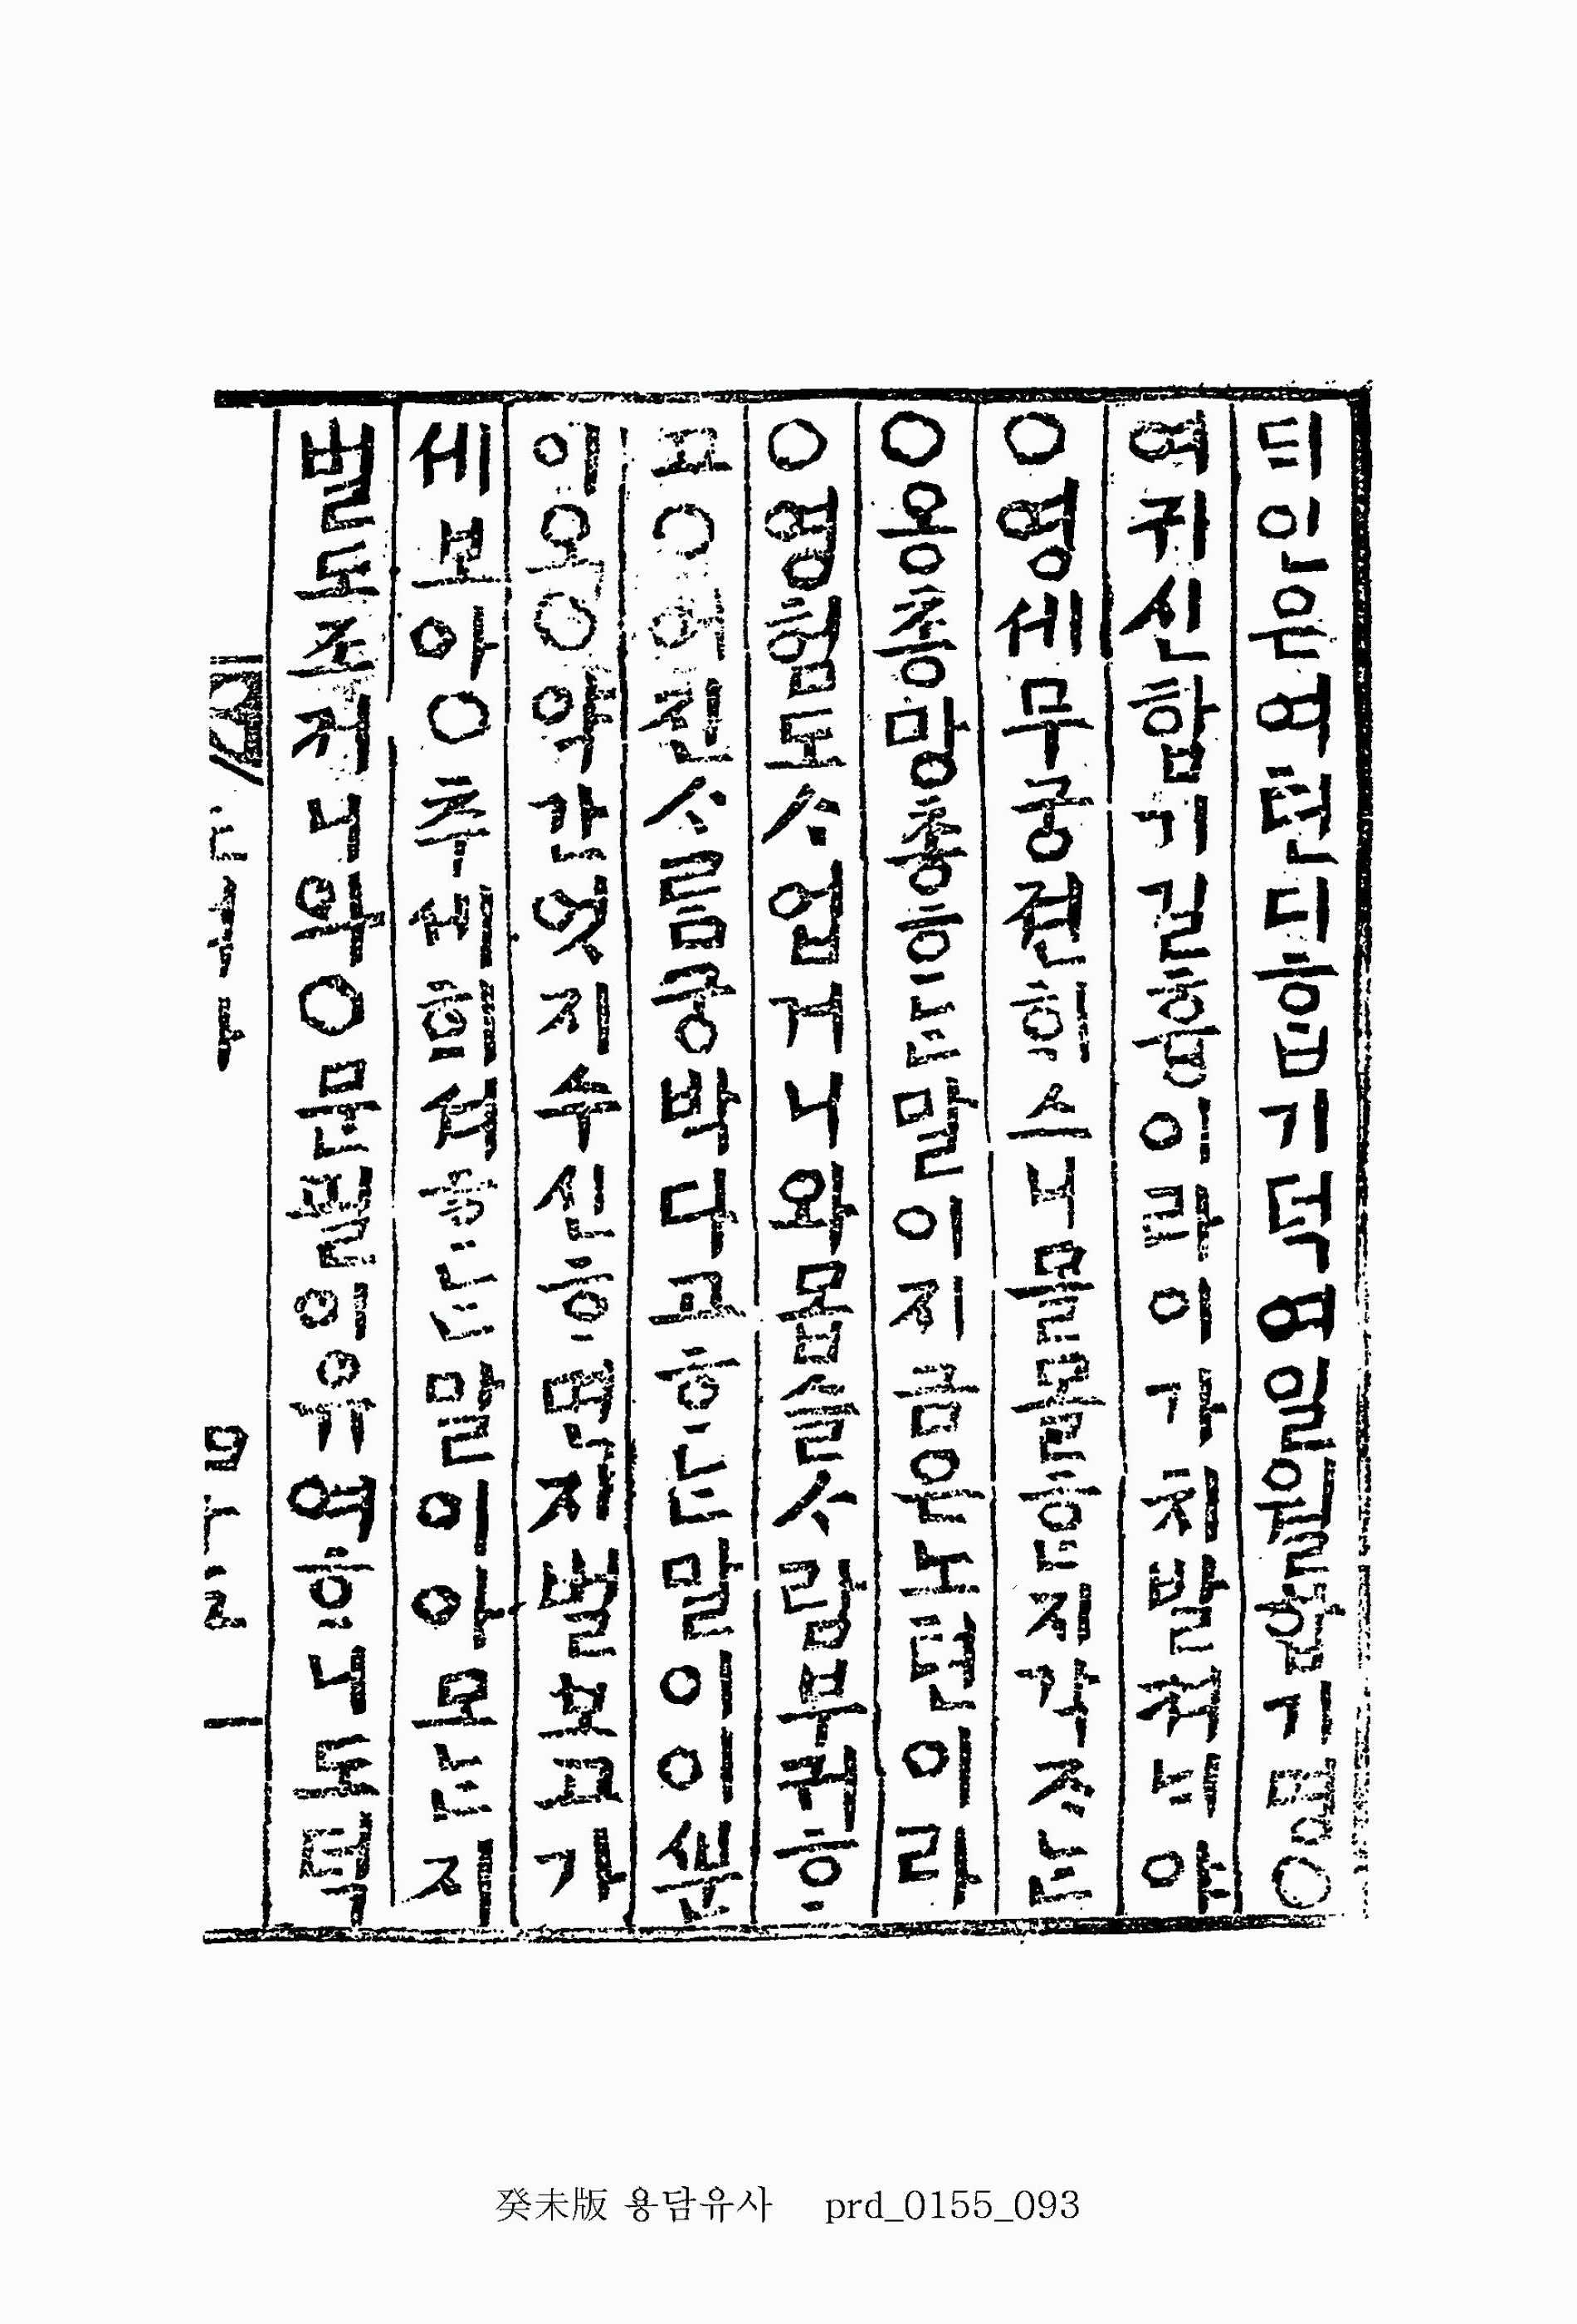 듸인은여텬디흡기덕여일월합기명○
여귀신합기길흉이라이가치발켜ᄂᆡ야
○영세무궁젼ᄒᆡ스니몰몰ᄒᆞᆫ지각ᄌᆞᄂᆞᆫ
○옹총망총ᄒᆞᄂᆞᆫ말이지금은노텬이라
○영험도ᄉᆞ업거니와몹슬ᄉᆞ람부귀ᄒᆞ
고○어진ᄉᆞ름궁박다고ᄒᆞᄂᆞᆫ말이이ᄲᅮᆫ
이오○약간엇지수신ᄒᆞ면지벌보고가
세보아○추세ᄒᆡ셔ᄒᆞᄂᆞᆫ말이아모ᄂᆞᆫ지
벌도조커니와○문필이유여ᄒᆞ니도덕
癸未版 용담유사 prd_0155_093